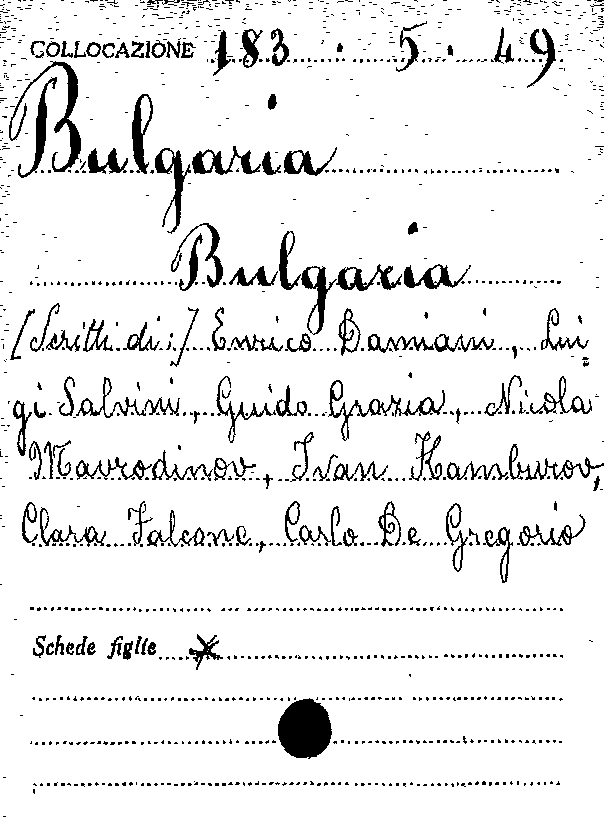 COLLOCAZIONE 183 . 5 . 49
Bulgaria
Bulgaria
[Scritti di:] Enrico Damiani, Lui=
gi Salvini, Guido Grazia, Nicola
Mavrodinov, Ivan Kamburov,
Clara Falcone, Carlo De Gregorio
Schede figlie x